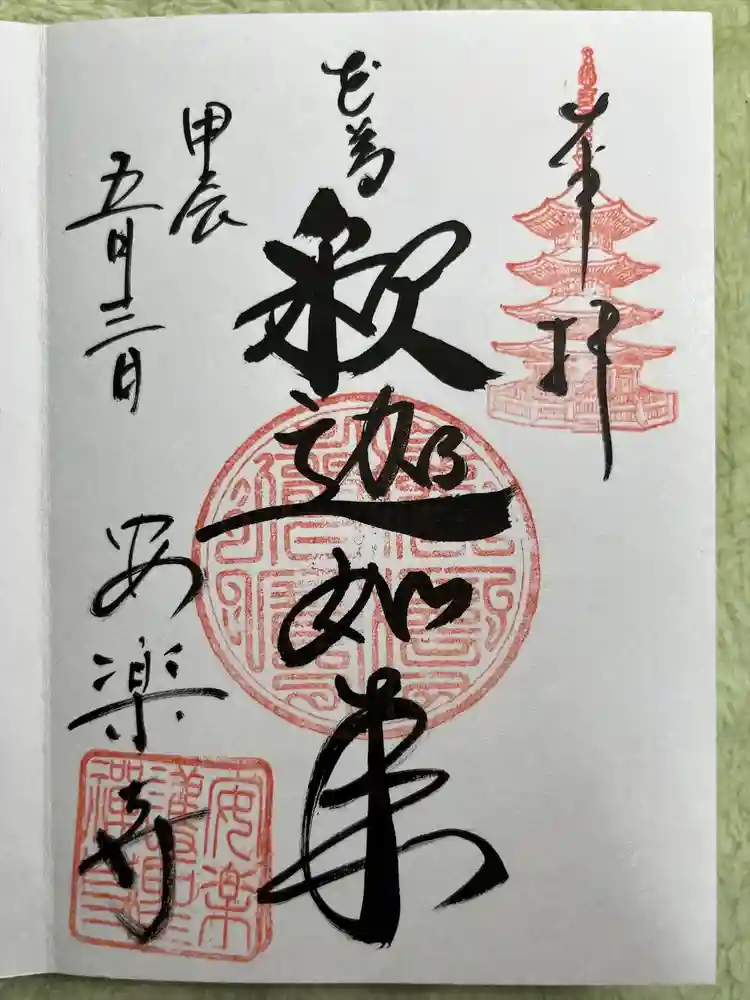 奉拝
本尊
釈迦如来
甲辰
五月三日
安楽寺